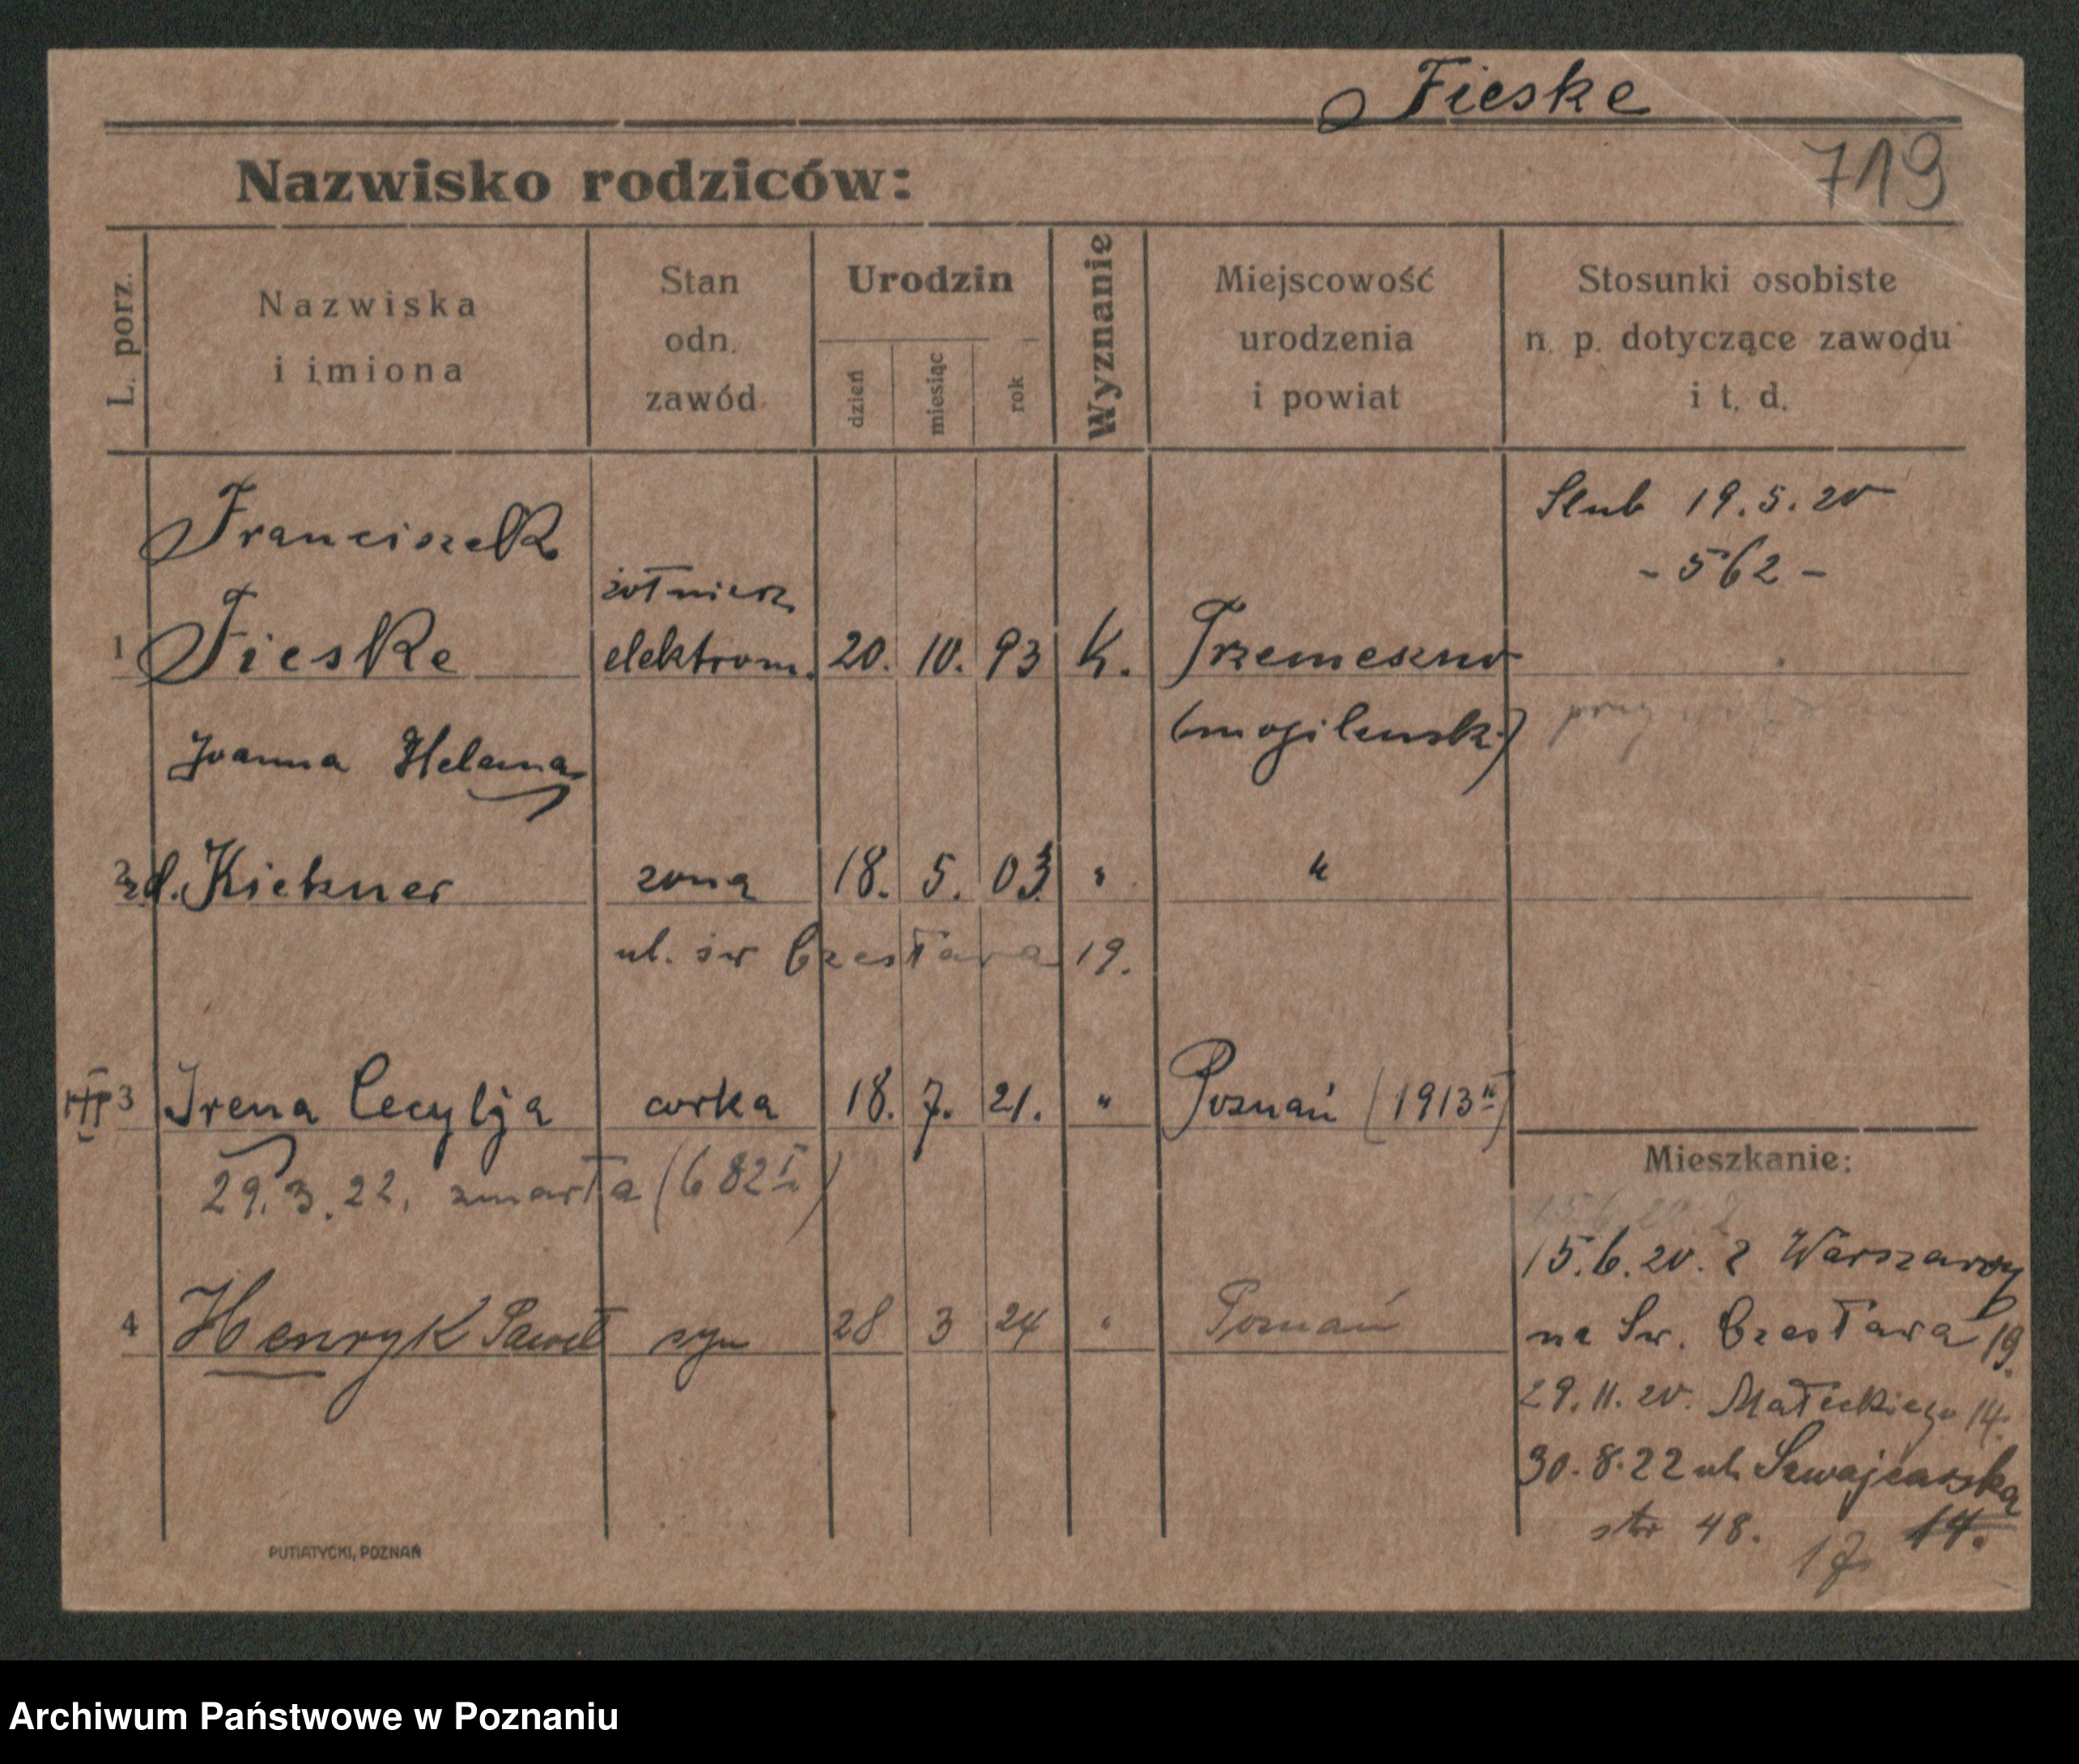 Fieske
719
Nazwisko rodziców:
L. porz.
Nazwiska
i imiona
Stan
odn.
zawód
Urodzin
dzień
miesiąc
rok
Wyznanie
Miejscowość
urodzenia
i powiat
Stosunki osobiste
n. p. dotyczące zawodu
i t. d.
Slub 19.5.20
- 562 -
Franciszek
żołnierz
1 Fieske elektrom. 20. 10. 93 K. Trzemeszno
(mogilensk.)
Joanna Helena
2 zd. Kirkner zona 18. 5. 03. " "
ul. św Czesława 19.
3 Irena Cecylja corka 18. 7. 21. " Poznań (1913 II)
29.3.22. zmarła (682 I)
4 Henryk Paweł syn 28 3 24 " Poznań
Mieszkanie:
15.6.20. z Warszawy
na Św. Czesława 19.
29.11.20. Małeckiego 14.
30.8.22 ul. Szwajcarska
str 48. 17 14.
PUTIATYCKI, POZNAŃ
Archiwum Państwowe w Poznaniu